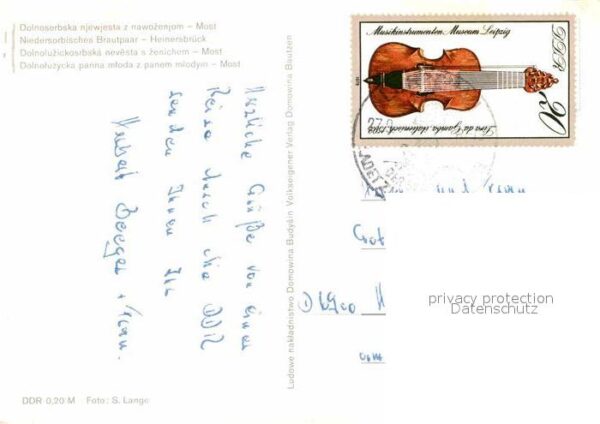 Dolnoserbska njewjesta z nawoženjom – Most
Niedersorbisches Brautpaar – Heinersbrück
Dolnolužickosrbská nevěsta s ženichem – Most
Dolnołużycka panna młoda z panem młodym – Most
Herzliche Grüße von einer
Reise durch die DDR
senden Ihnen Ihr
Hubert Berger + Frau.
DDR 0,20 M Foto: S. Lange
Ludowe nakładnistwo Domowina Budyšin Volkseigener Verlag Domowina Bautzen
Musikinstrumenten-Museum Leipzig
DDR
1979
20
Lira da Gamba, italienisch, 1592
und Frau
privacy protection
Datenschutz